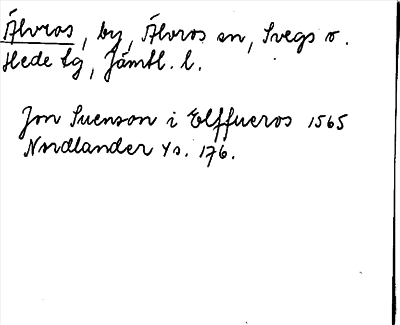 Älvros, by, Älvros sn, Svegs o.
Hede tg, Jämtl. l.
Jon Suenson i Elffueros 1565
Nordlander Ys. 176.